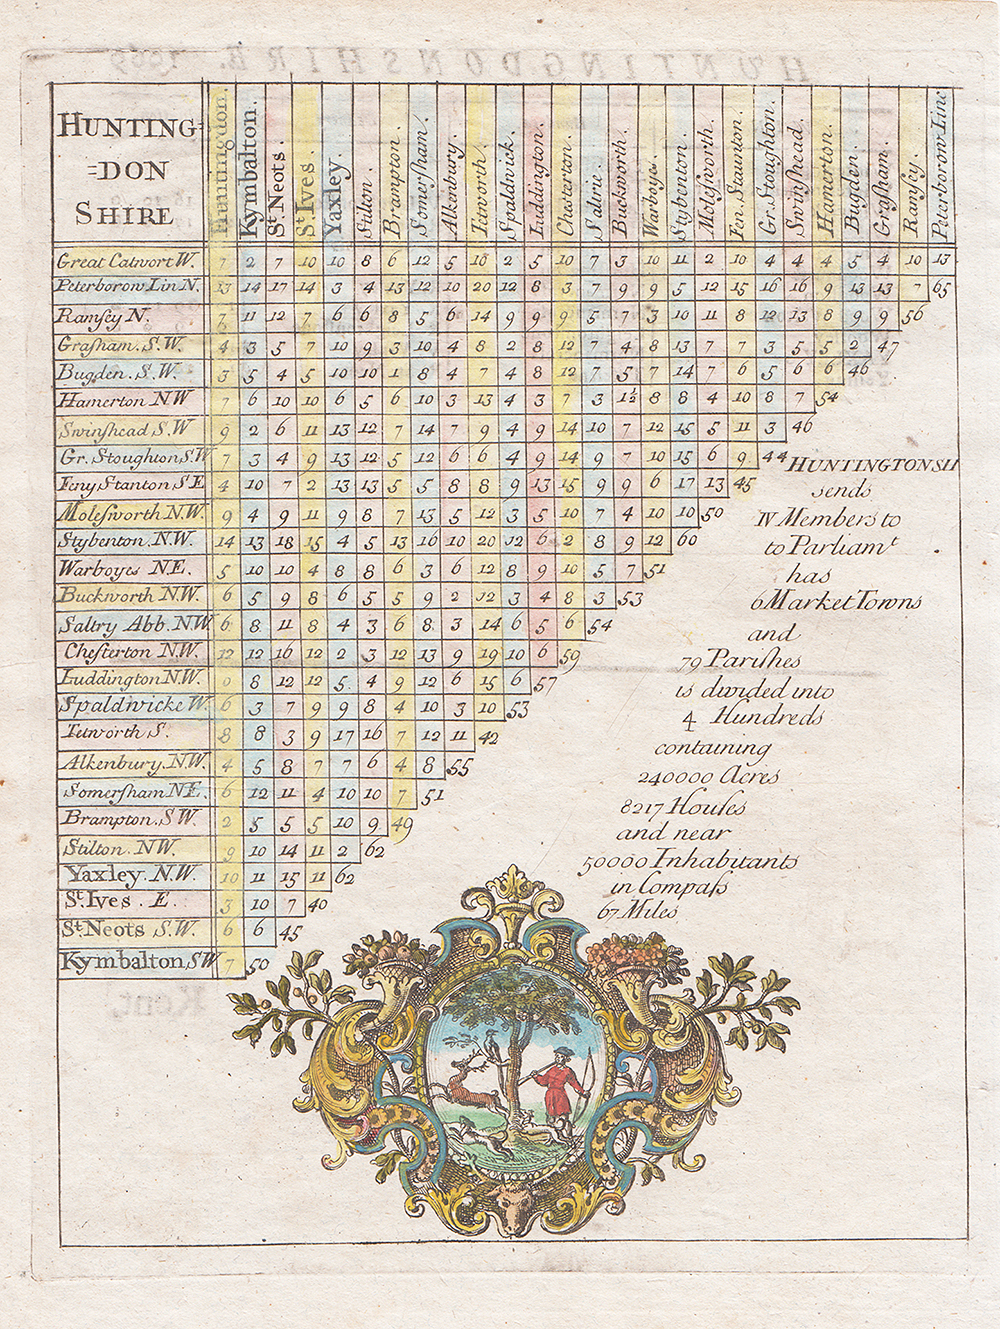 HUNTING=
=DON
SHIRE
Huntingdon. Kymbalton. St. Neots. St. Ives Yaxley. Stilton. Brampton. Somersham. Alkenbury. Tetworth Spaldwick. Luddington. Chesterton. Saltrie. Buckworth. Warboys. Stybenton. Molesworth. Fen. Staunton. Gr. Stoughton. Swinshead. Hamerton. Bugden. Grasham. Ramsey. Peterborow-Linc
Great Catwort W. 7 2 7 10 10 8 6 12 5 10 2 5 10 7 3 10 11 2 10 4 4 4 5 4 10 13
Peterborow Lin N. 13 14 17 14 3 4 13 12 10 20 12 8 3 7 9 9 5 12 15 16 16 9 13 13 7 65
Ramsey N. 7 11 12 7 6 6 8 5 6 14 9 9 9 5 7 3 10 11 8 12 13 8 9 9 56
Grasham. S.W. 4 3 5 7 10 9 3 10 4 8 2 8 12 7 4 8 13 7 7 3 5 5 2 47
Bugden. S.W. 3 5 4 5 10 10 1 8 4 7 4 8 12 7 5 7 14 7 6 5 6 6 46
Hamerton NW 7 6 10 10 6 5 6 10 3 13 4 3 7 3 1½ 8 8 4 10 8 7 54
Swinshead S.W 9 2 6 11 13 12 7 14 7 9 4 9 14 10 7 12 15 5 11 3 46
Gr. Stoughton S.W 7 3 4 9 13 12 5 12 6 6 4 9 14 9 7 10 15 6 9 44
Feny Stanton S.E 4 10 7 2 13 13 5 5 8 8 9 13 15 9 9 6 17 13 45
Molesworth N.W. 9 4 9 11 9 8 7 13 5 12 3 5 10 7 4 10 10 50
Stybenton. N.W. 14 13 18 15 4 5 13 16 10 20 12 6 2 8 9 12 60
Warboyes N.E. 5 10 10 4 8 8 6 3 6 12 8 9 10 5 7 51
Buckworth N.W. 6 5 9 8 6 5 5 9 2 12 3 4 8 3 53
Saltry Abb. N.W 6 8 11 8 4 3 6 8 3 14 6 5 6 54
Chesterton N.W. 12 12 16 12 2 3 12 13 9 19 10 6 59
Luddington N.W. 8 12 12 5 4 9 12 6 15 6 57
Spaldwicke W. 6 3 7 9 9 8 4 10 3 10 53
Tetworth S. 8 8 3 9 17 16 7 12 11 42
Alkenbury. N.W. 4 5 8 7 7 6 4 8 55
Somersham NE. 6 12 11 4 10 10 7 51
Brampton. S W. 2 5 5 5 10 9 49
Stilton. NW. 9 10 14 11 2 62
Yaxley. N.W. 10 11 15 11 62
St. Ives. E. 3 10 7 40
St. Neots S.W. 6 6 45
Kymbalton SW 7 50
HUNTINGTONSH
sends
IV Members to
to Parliamt
has
6 Market Towns
and
79 Parishes
is divided into
4 Hundreds
containing
240000 Acres
8217 Houses
and near
50000 Inhabitants
in Compass
67 Miles